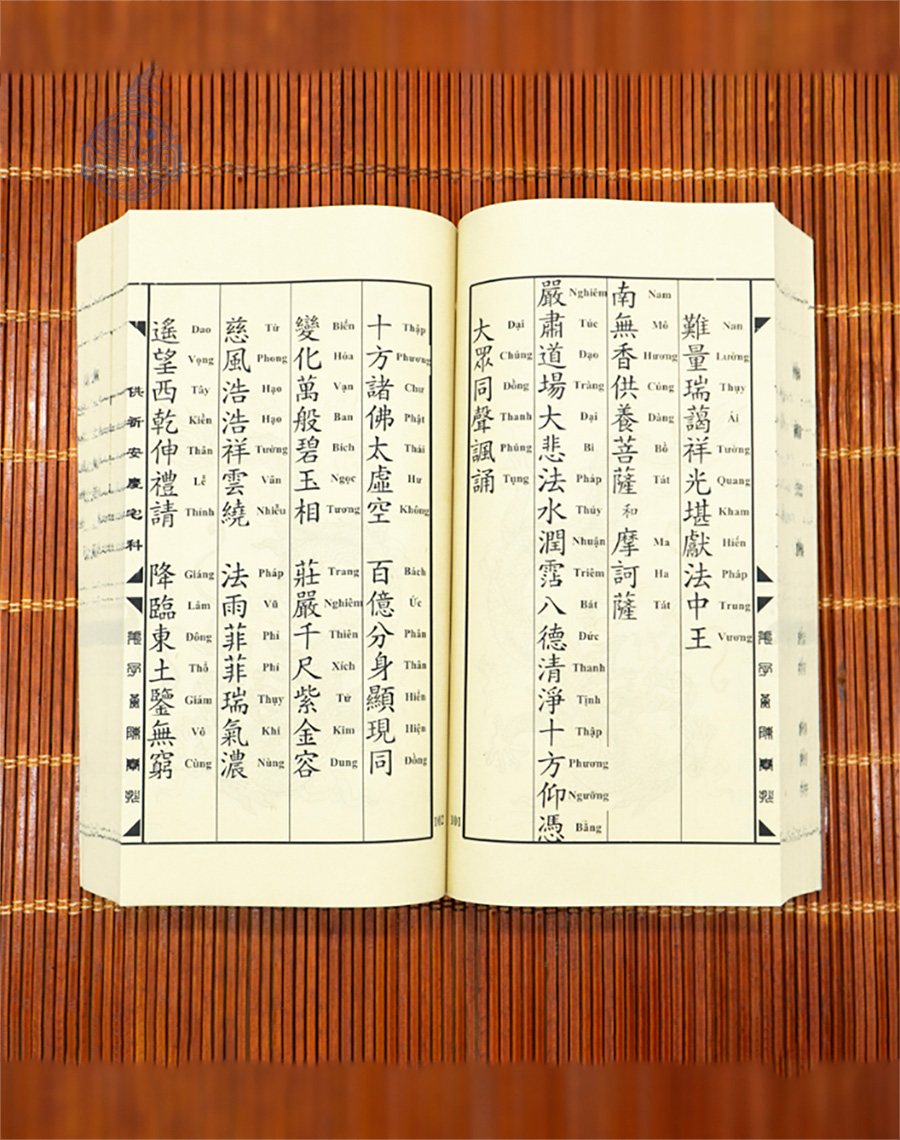 難量瑞藹祥光堪獻法中王
Nan Lường Thụy Ái Tường Quang Kham Hiến Pháp Trung Vương
南無香供養菩薩和摩訶薩
Nam Mô Hương Cúng Dàng Bồ Tát Ma Ha Tát
嚴肅道場大悲法水潤霑八德清淨十方仰憑
Nghiêm Túc Đạo Tràng Đại Bi Pháp Thủy Nhuận Triêm Bát Đức Thanh Tịnh Thập Phương Ngưỡng Bằng
大眾同聲諷誦
Đại Chúng Đồng Thanh Phúng Tụng
101
102
十方諸佛太虛空 百億分身顯現同
Thập Phương Chư Phật Thái Hư Không Bách Ức Phân Thân Hiển Hiện Đồng
變化萬般碧玉相 莊嚴千尺紫金容
Biến Hóa Vạn Ban Bích Ngọc Tương Trang Nghiêm Thiên Xích Tử Kim Dung
慈風浩浩祥雲繞 法雨菲菲瑞氣濃
Từ Phong Hạo Hạo Tường Vân Nhiễu Pháp Vũ Phi Phi Thụy Khí Nùng
遙望西乾伸禮請 降臨東土鑒無窮
Dao Vọng Tây Kiền Thân Lễ Thỉnh Giáng Lâm Đông Thổ Giám Vô Cùng
供新安慶宅科